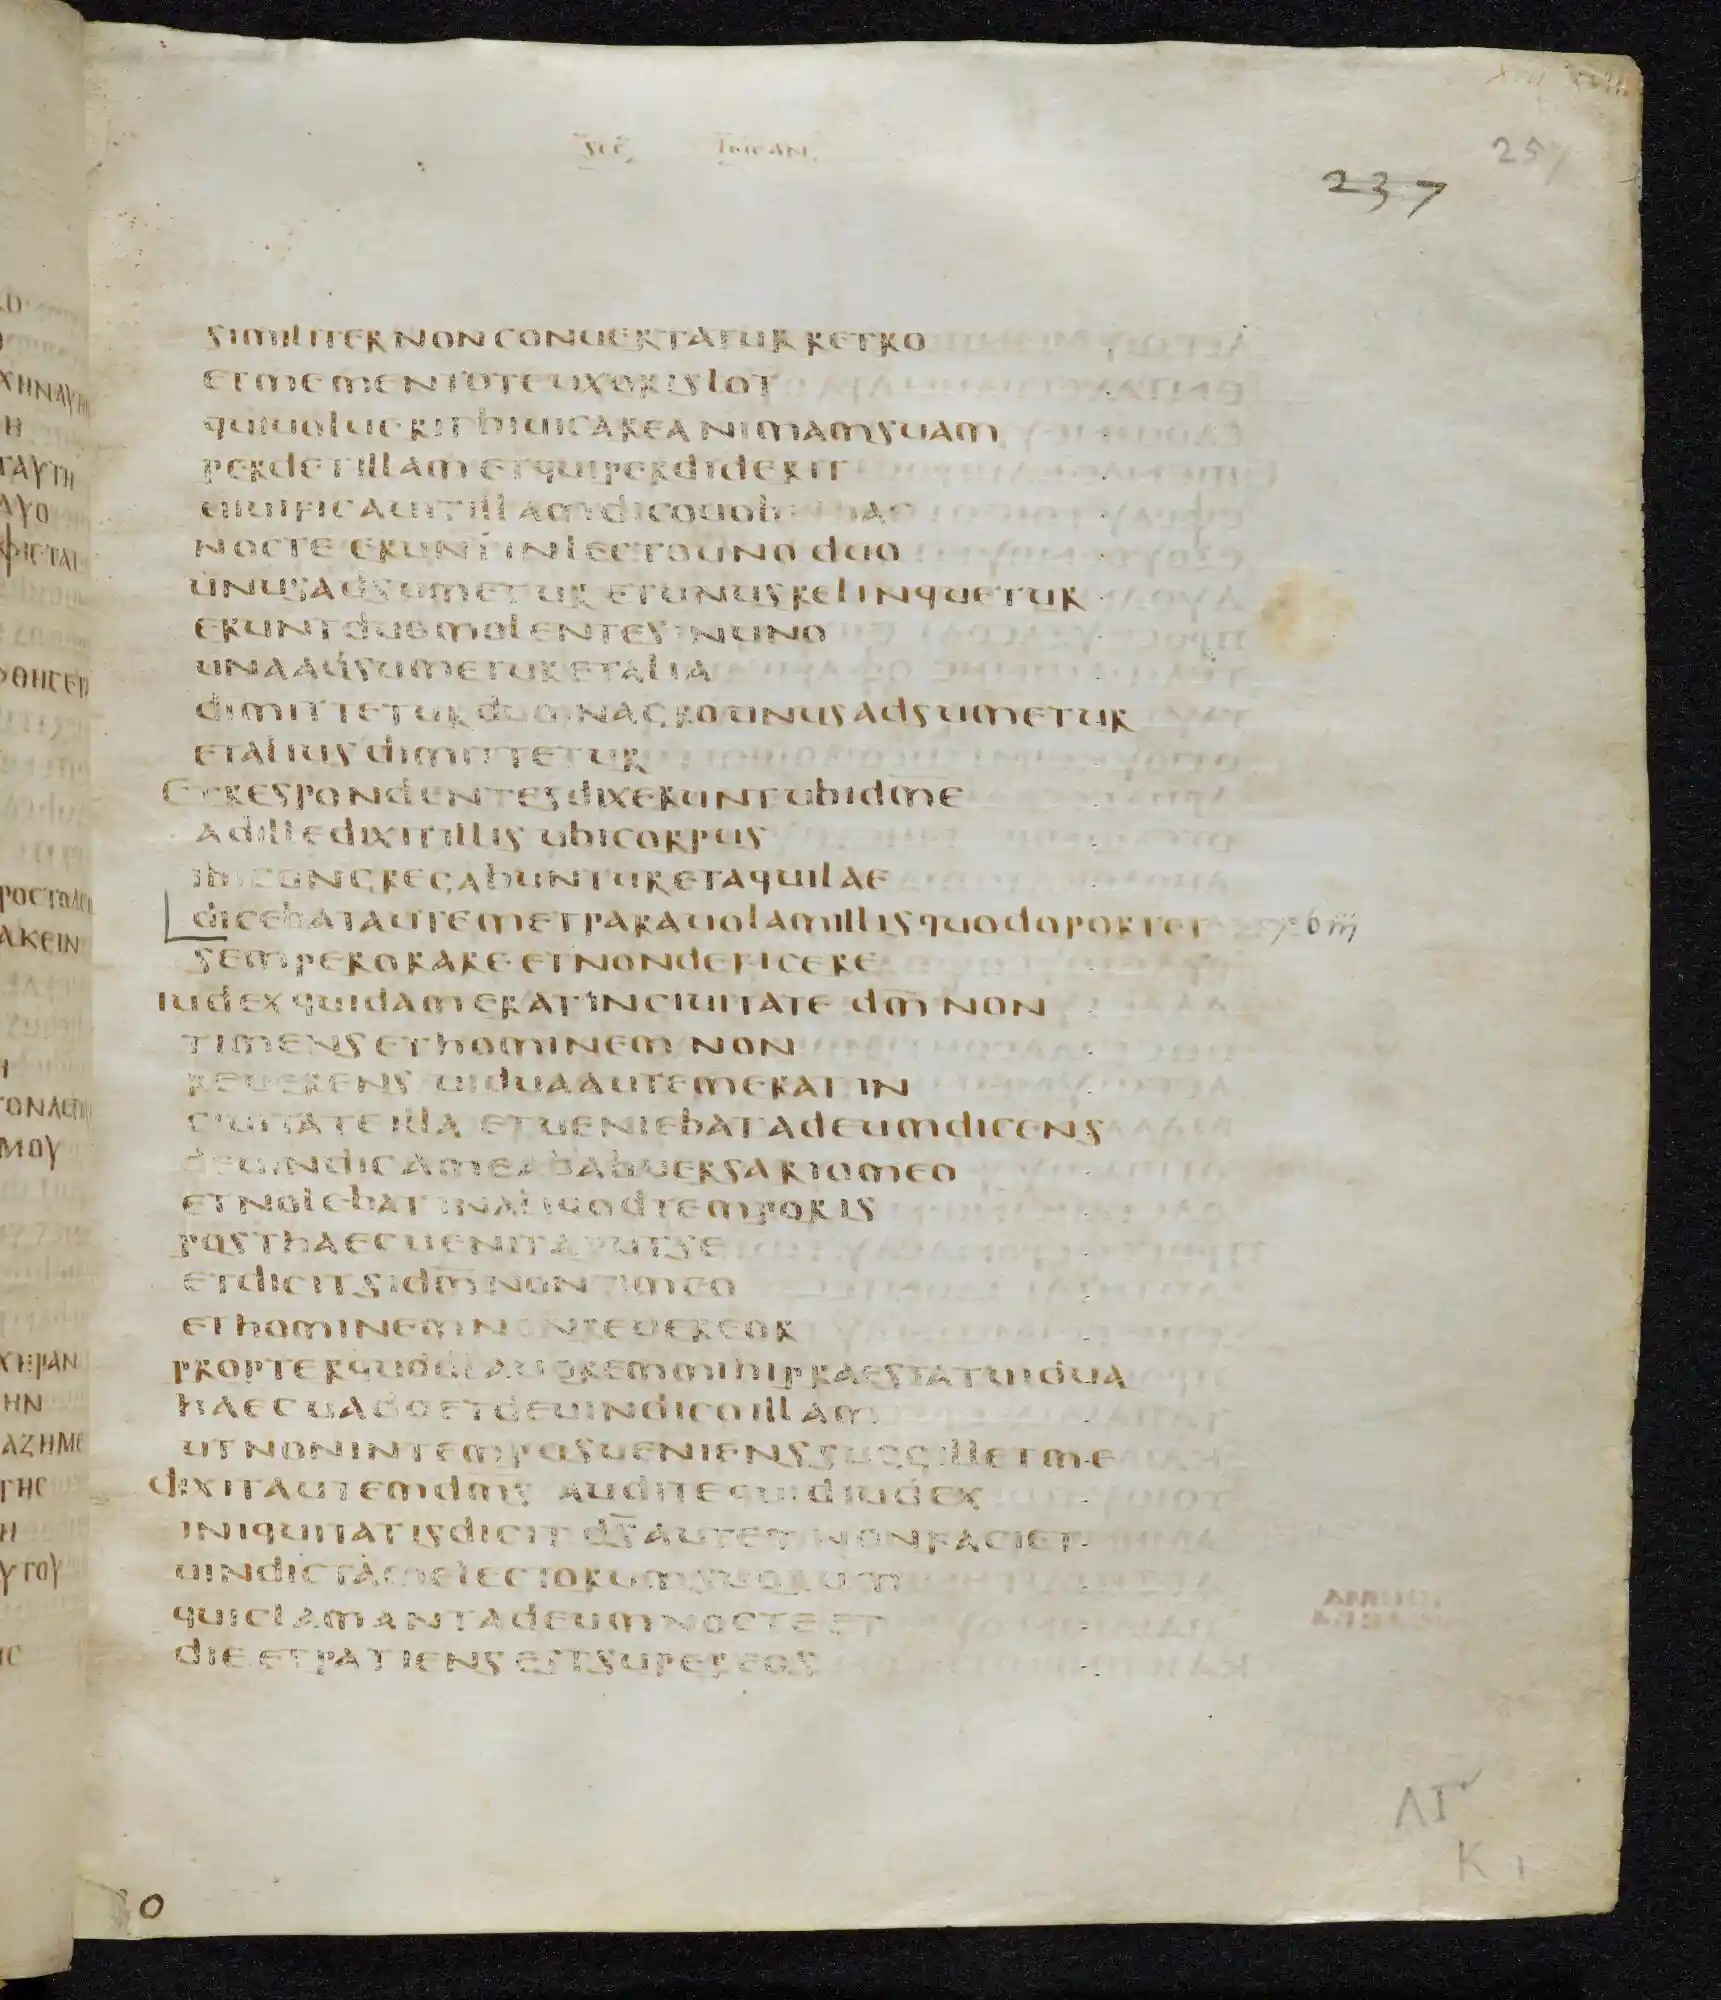 257
237
similiter non conuertatur retro
et mementote uxoris lot
qui uoluerit biuicare animam suam
perdet illam et qui perdiderit
uiuificauit illam dico uob hac
nocte erunt in lecto uno duo
unus adsumetur et unus relinquetur
erunt duo molentes in uno
una adsumetur et alia
dimittetur duo in agro unus adsumetur
et alius dimittetur
Et respondentes dixerunt ubi dm̅e
ad ille dixit illis ubi corpus
ibi congregabuntur et aquilae
dicebat autem et parauolam illis quod oportet
semper orare et non deficere
iudex quidam erat in ciuitate dm̅ non
timens et hominem non
reuerens uidua autem erat in
ciuitate illa et ueniebat ad eum dicens
deuindica me ab abuersario meo
et nolebat in aliqod temporis
post haec uenit aput se
et dicit si dm̅ non timeo
et hominem non reuereor
propter quod lauorem mihi praestat uidua
haec uado et deuindico illam
ut non in tempus ueniens suggillet me
dixit autem dm̅s audite quid iudex
iniquitatis dicit ds̅ autem non faciet
uindictam electorum suorum
qui clamant ad eum nocte et
die et patiens est super eos
K 1
o